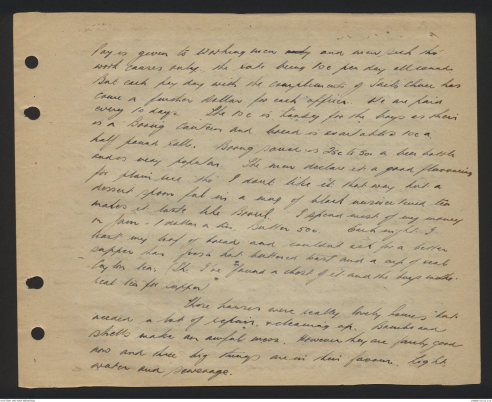 Pay is given to working men only and men sick thro'
work causes only. the rate being 10c per day all round.
But each pay day with the compliments of
come a further dollar for each officer. We are paid
every 10 days. The 10c is handy for the boys as there
is a Boong Canteen and bread is available 10c a
half pound roll. Boong sauce is 25c to 50c a beer bottle
and is very popular. The men declare it a good flavouring
for plain rice. tho' I don't like it that way but a
dessert spoon full in a mug of black unsweetened tea
makes it taste like Bovril. I spend most of my money
on Jam - 1 dollar a tin. Butter 50c. Each night I
toast my loaf of bread and
supper has fresh hot buttered toast and a cup of real
tea. I've found a chest of it and the boys make
real tea for supper
Those houses were really lovely homes but
needed a lot of repairs & cleaning up. Bombs and
shells make an awful mess. However they are fairly good
now and three big things are in their favour. Light
water and sewerage.